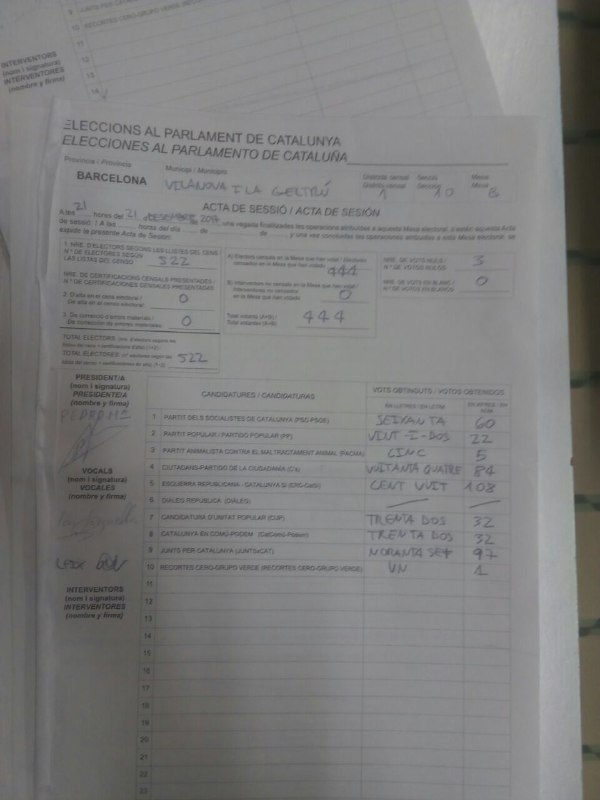 9 JUNTS PER CATALUNYA (JUNTS
10 RECORTES CERO-GRUPO VERDE (RECORTES
INTERVENTORS
(nom i signatura)
INTERVENTORES
(nombre y firma)
11
12
13
14
ELECCIONS AL PARLAMENT DE CATALUNYA
ELECCIONES AL PARLAMENTO DE CATALUÑA
Província / Provincia
BARCELONA
Municipi / Municipio
VILANOVA I LA GELTRÚ
Districte censal
Distrito censal
1
Secció
Sección
10
Mesa
Mesa
B
ACTA DE SESSIÓ / ACTA DE SESIÓN
A les 21 hores del 21 DESEMBRE de 2017, una vegada finalitzades les operacions atribuïdes a aquesta Mesa electoral, s'estén aquesta Acta
de sessió. / A las hores del día de de y una vez concluidas las operaciones atribuidas a esta Mesa electoral, se
expide la presente Acta de Sesión:
1. NRE. D'ELECTORS SEGONS LES LLISTES DEL CENS
N.º DE ELECTORES SEGÚN
LAS LISTAS DEL CENSO
522
NRE. DE CERTIFICACIONS CENSALS PRESENTADES /
N.º DE CERTIFICACIONES CENSALES PRESENTADAS
2. D'alta en el cens electoral /
De alta en el censo electoral
0
3. De correcció d'errors materials /
De corrección de errores materiales
0
TOTAL ELECTORS
TOTAL ELECTORES
522
A) Electors censats en la Mesa que han votat / Electores
censados en la Mesa que han votado
444
B) Interventors no censats en la Mesa que han votat /
Interventores no censados
en la Mesa que han votado
0
Total votants (A+B) /
Total votantes (A+B)
444
NRE. DE VOTS NULS /
N.º DE VOTOS NULOS
3
NRE. DE VOTS EN BLANC /
N.º DE VOTOS EN BLANCO
0
PRESIDENT/A
(nom i signatura)
PRESIDENTE/A
(nombre y firma)
VOCALS
(nom i signatura)
VOCALES
(nombre y firma)
INTERVENTORS
(nom i signatura)
INTERVENTORES
(nombre y firma)
CANDIDATURES / CANDIDATURAS
VOTS OBTINGUTS / VOTOS OBTENIDOS
EN LLETRES / EN LETRA
EN XIFRES / EN
NÚM.
1 PARTIT DELS SOCIALISTES DE CATALUNYA (PSC-PSOE) SEIXANTA 60
2 PARTIT POPULAR / PARTIDO POPULAR (PP) VINT-I-DOS 22
3 PARTIT ANIMALISTA CONTRA EL MALTRACTAMENT ANIMAL (PACMA) CINC 5
4 CIUTADANS-PARTIDO DE LA CIUDADANÍA (C's) VUITANTA QUATRE 84
5 ESQUERRA REPUBLICANA - CATALUNYA SÍ (ERC-CatSí) CENT VUIT 108
6 DIÀLEG REPUBLICÀ (DIÀLEG)
7 CANDIDATURA D'UNITAT POPULAR (CUP) TRENTA DOS 32
8 CATALUNYA EN COMÚ-PODEM (CatComú-Podem) TRENTA DOS 32
9 JUNTS PER CATALUNYA (JUNTSxCAT) NORANTA SET 97
10 RECORTES CERO-GRUPO VERDE (RECORTES CERO-GRUPO VERDE) UN 1
11
12
13
14
15
16
17
18
19
20
21
22
23